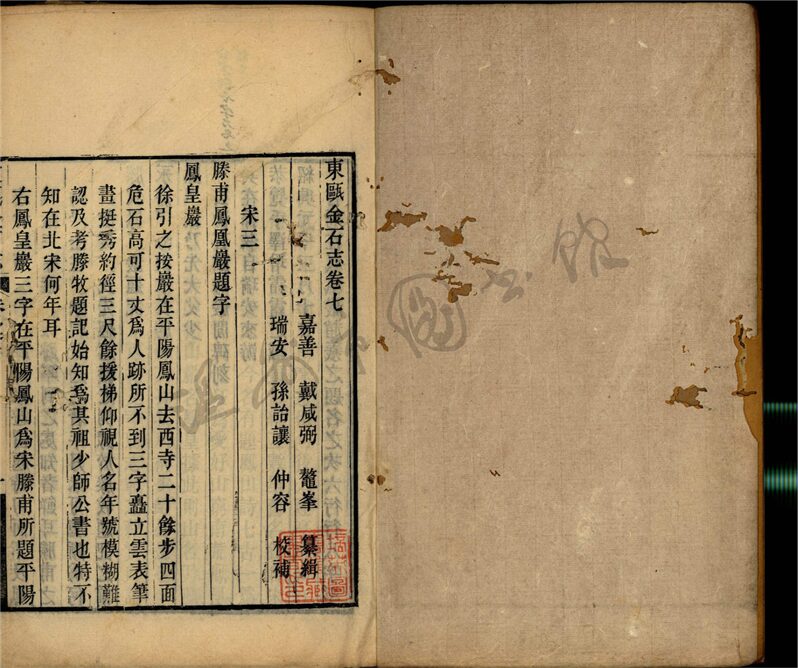 東甌金石志卷七
嘉善 戴咸弼 鼇峯 纂緝
瑞安 孫詒讓 仲容 校補
宋三
滕甫鳳凰巖題字
鳳皇巖
徐引之按巖在平陽鳳山去西寺二十餘步四面
危石高可十丈爲人跡所不到三字矗立雲表筆
畫挺秀約徑三尺餘援梯仰視人名年號模糊難
認及考滕牧題記始知爲其祖少師公書也特不
知在北宋何年耳
右鳳皇巖三字在平陽鳳山爲宋滕甫所題平陽